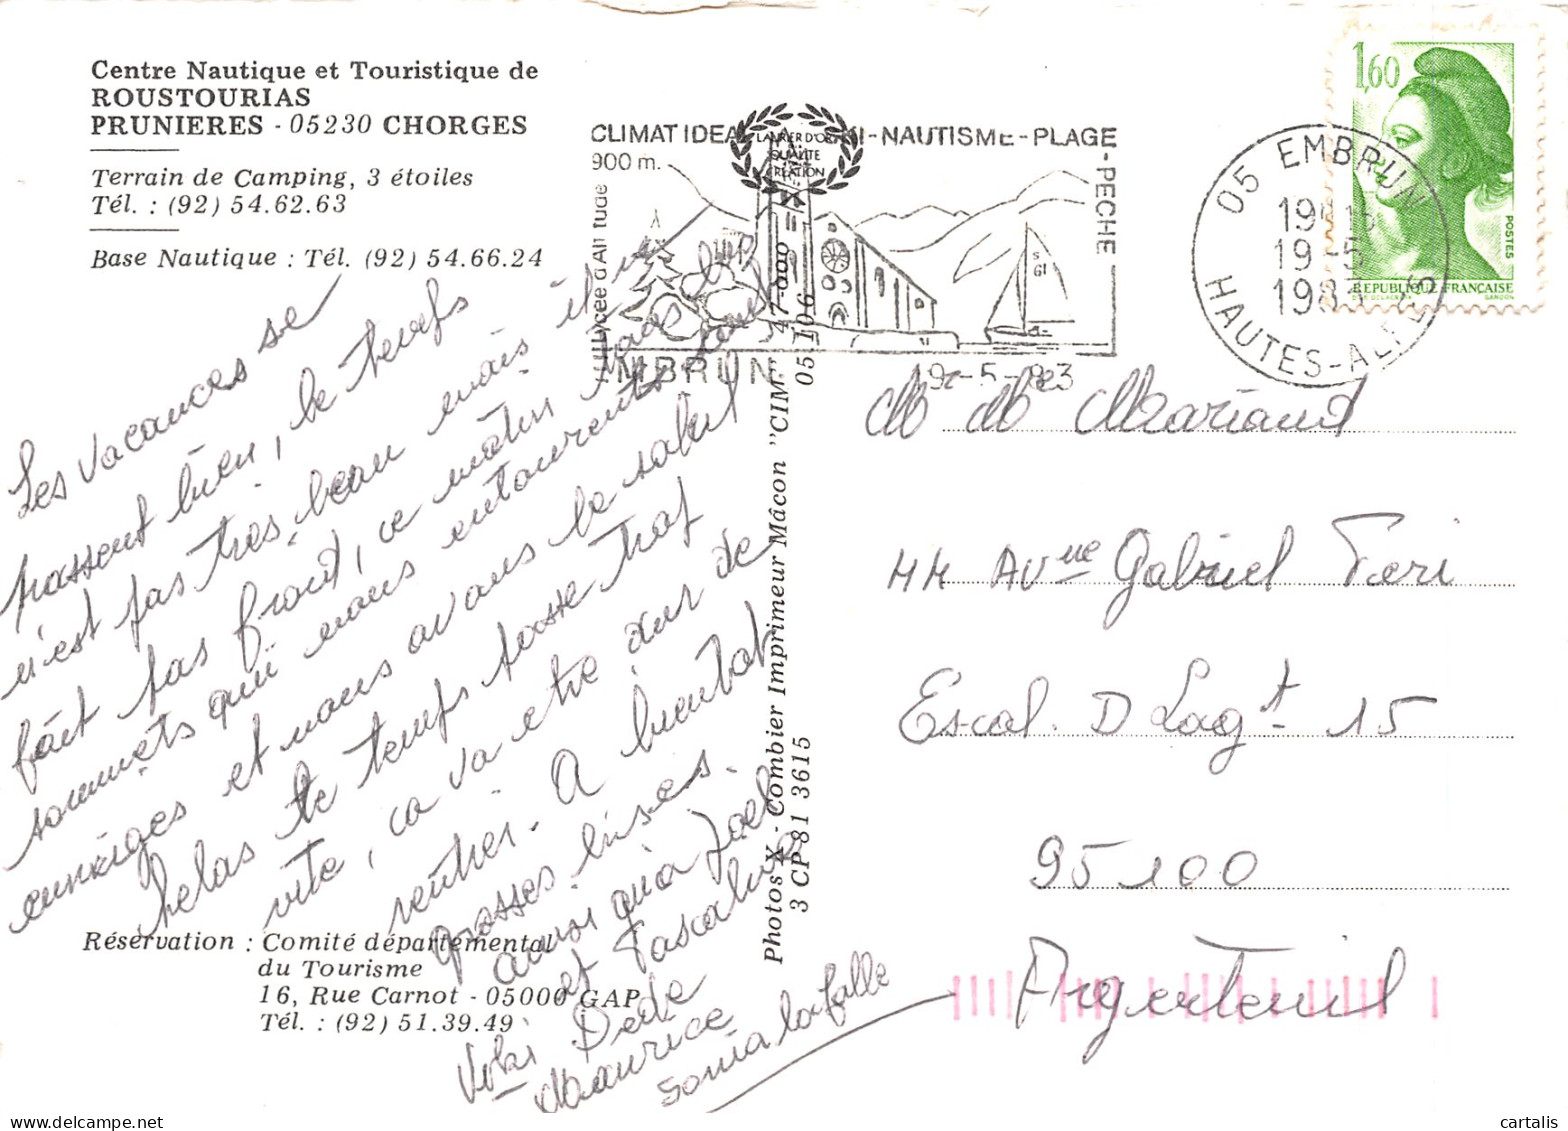 Centre Nautique et Touristique de
ROUSTOURIAS
PRUNIERES - 05230 CHORGES
Terrain de Camping, 3 étoiles
Tél. : (92) 54.62.63
Base Nautique : Tél. (92) 54.66.24
CLIMAT IDEAL SKI-NAUTISME-PLAGE
-PECHE
900 m.
Lycée d'Altitude
EMBRUN
LAURIER D'OR
QUALITE
CREATION
05 EMBRUN
19-5
HAUTES-ALPES
19-5-83
1,60
POSTES
REPUBLIQUE FRANÇAISE
GANDON
Les vacances se
passent bien, le temps
n'est pas très beau mais il ne
fait pas froid, ce matin tous les
sommets qui nous entourent sont
enneigés et nous avons le soleil
helas le temps passe trop
vite, ça va etre dur de
rentrer. A bientot
grosses bises.
ainsi qu'a Joel
et Pascaline
Dédé
Maurice
Sonia la folle
Réservation : Comité départemental
du Tourisme
16, Rue Carnot - 05000 GAP
Tél. : (92) 51.39.49
Photos X - Combier Imprimeur Mâcon "CIM"
3 CP 81 3615
05 106
Mr Me Mariaud
44 Avnue Gabriel Peri
Escal. D Logt 15
95100
Argenteuil
cartalis